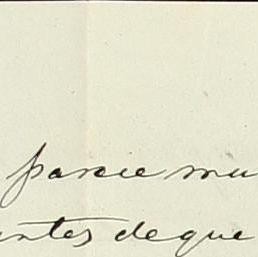 parece mu
antes de que